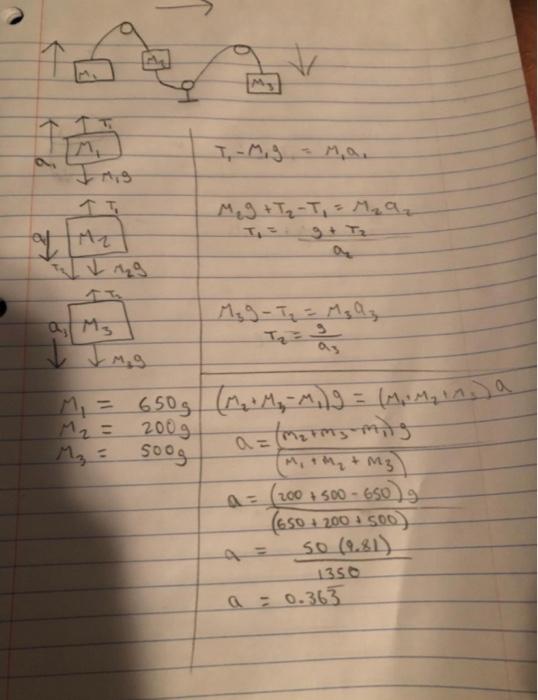 M₁
M₂
M₃
T₁
M₁
a₁
M₁g
T₁ - M₁g = M₁a₁
T₁
M₂
a
T₂
M₂g
M₂g + T₂ - T₁ = M₂a₂
T₁ = g + T₂
a₂
T₂
M₃
a₃
M₃g
M₃g - T₂ = M₃a₃
T₂ = g
a₃
M₁ = 650g
M₂ = 200g
M₃ = 500g
(M₂+M₃-M₁)g = (M₁+M₂+M₃)a
a = (M₂+M₃-M₁)g
(M₁+M₂+M₃)
a = (200+500-650)g
(650+200+500)
a = 50(9.81)
1350
a = 0.363̅